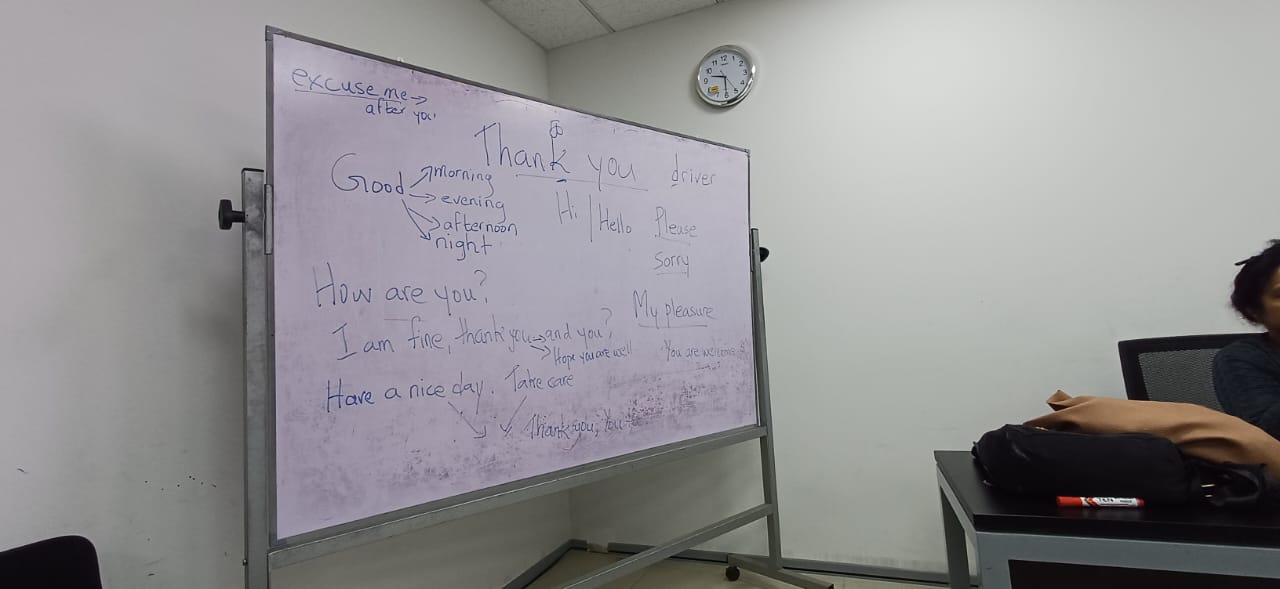 excuse me →
after you
Thank you driver
Good → morning
→ evening
→ afternoon
night
Hi | Hello
Please
Sorry
How are you?
I am fine, thank you → and you?
→ Hope you are well
My pleasure
You are welcome
Have a nice day. Take care
Thank you, You
12 1 2 3 4 5 6 7 8 9 10 11